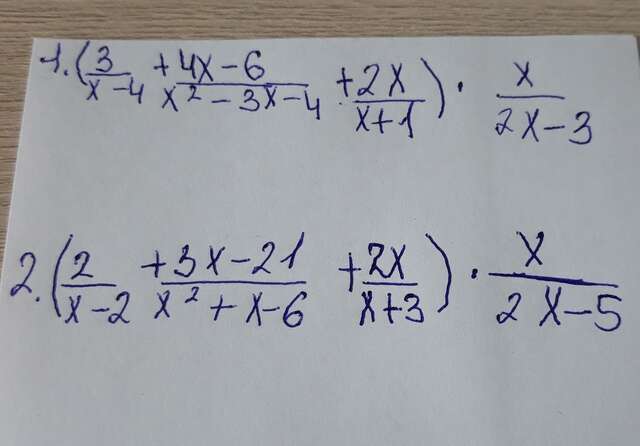 1. (3/(x-4) + (4x-6)/(x² - 3x - 4) + 2x/(x+1)) · x/(2x-3)
2. (2/(x-2) + (3x-21)/(x² + x - 6) + 2x/(x+3)) · x/(2x-5)